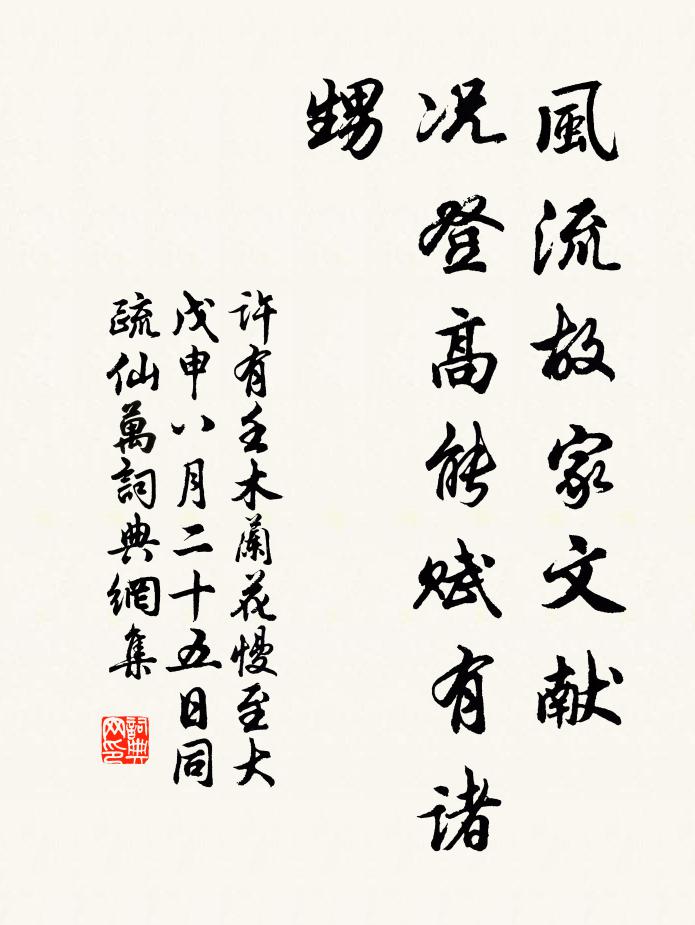 風流故家文献
况登高能賦有諸
甥
許有壬木蘭花慢至大
戊申八月二十五日同
疏仙萬詞典網集
詞典網印